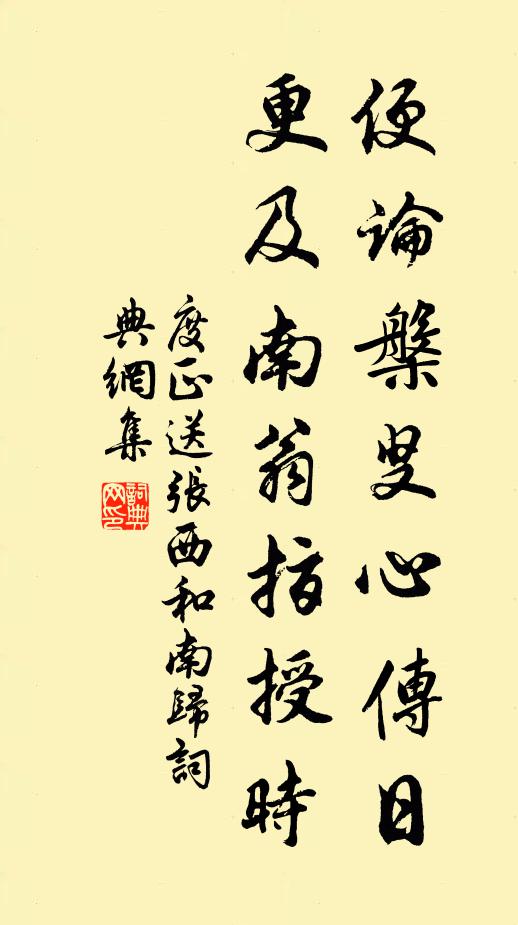 便論槃叟心傳日
更及南翁指授時
度正送張西和南歸詞
典網集
詞典網印